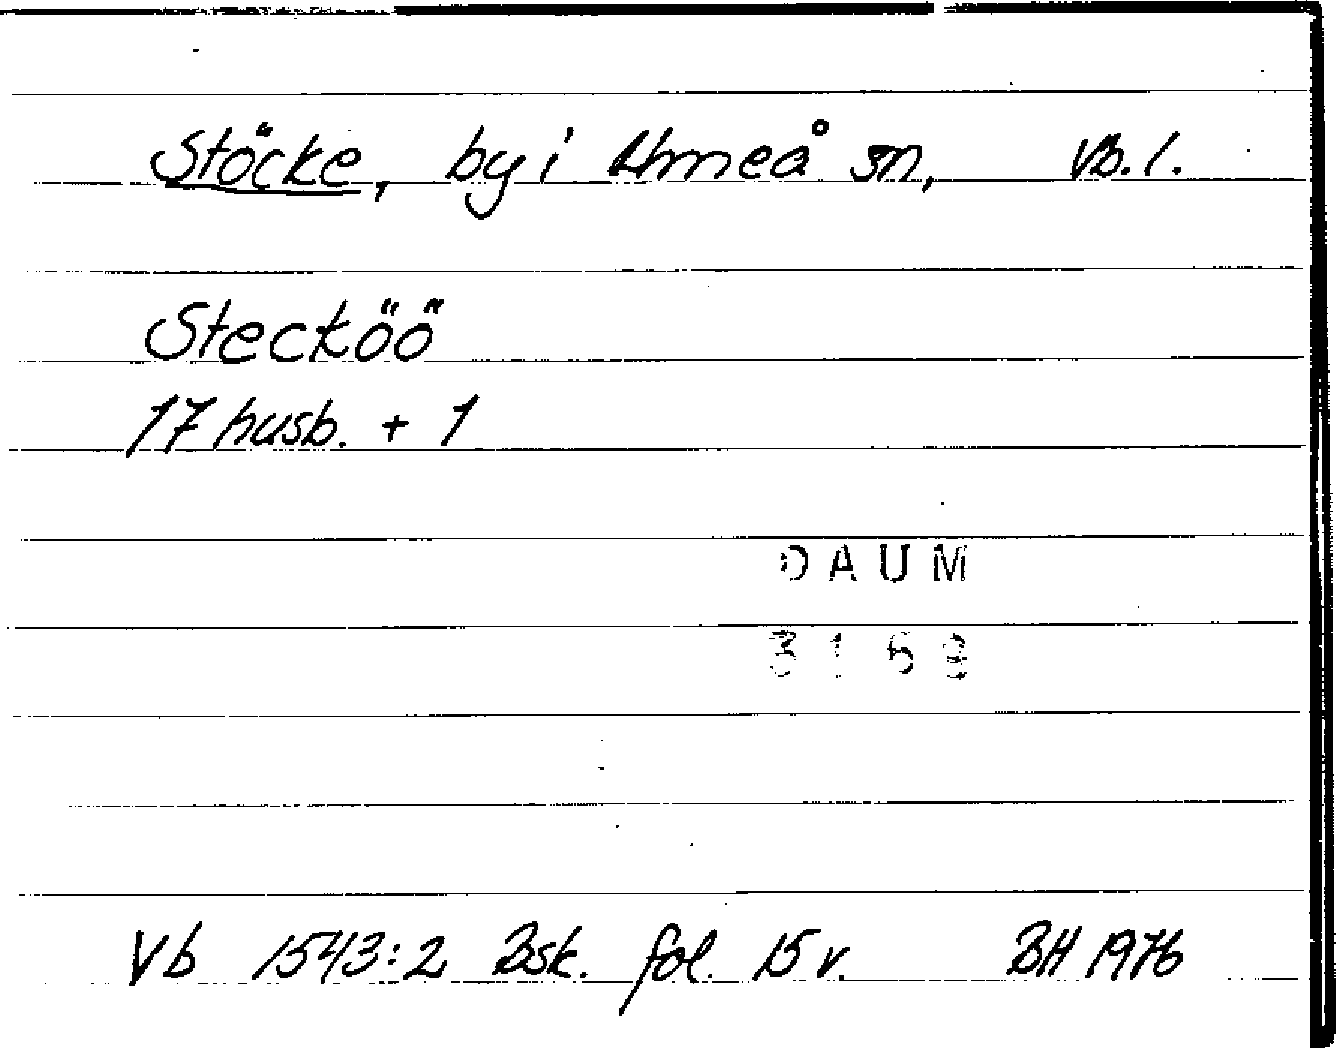 Stöcke, by i Umeå sn, Vb. l.
Stecköö
17 husb. + 1
DAUM
3169
Vb 1543:2 Bsk. fol. 15 v. BH 1976